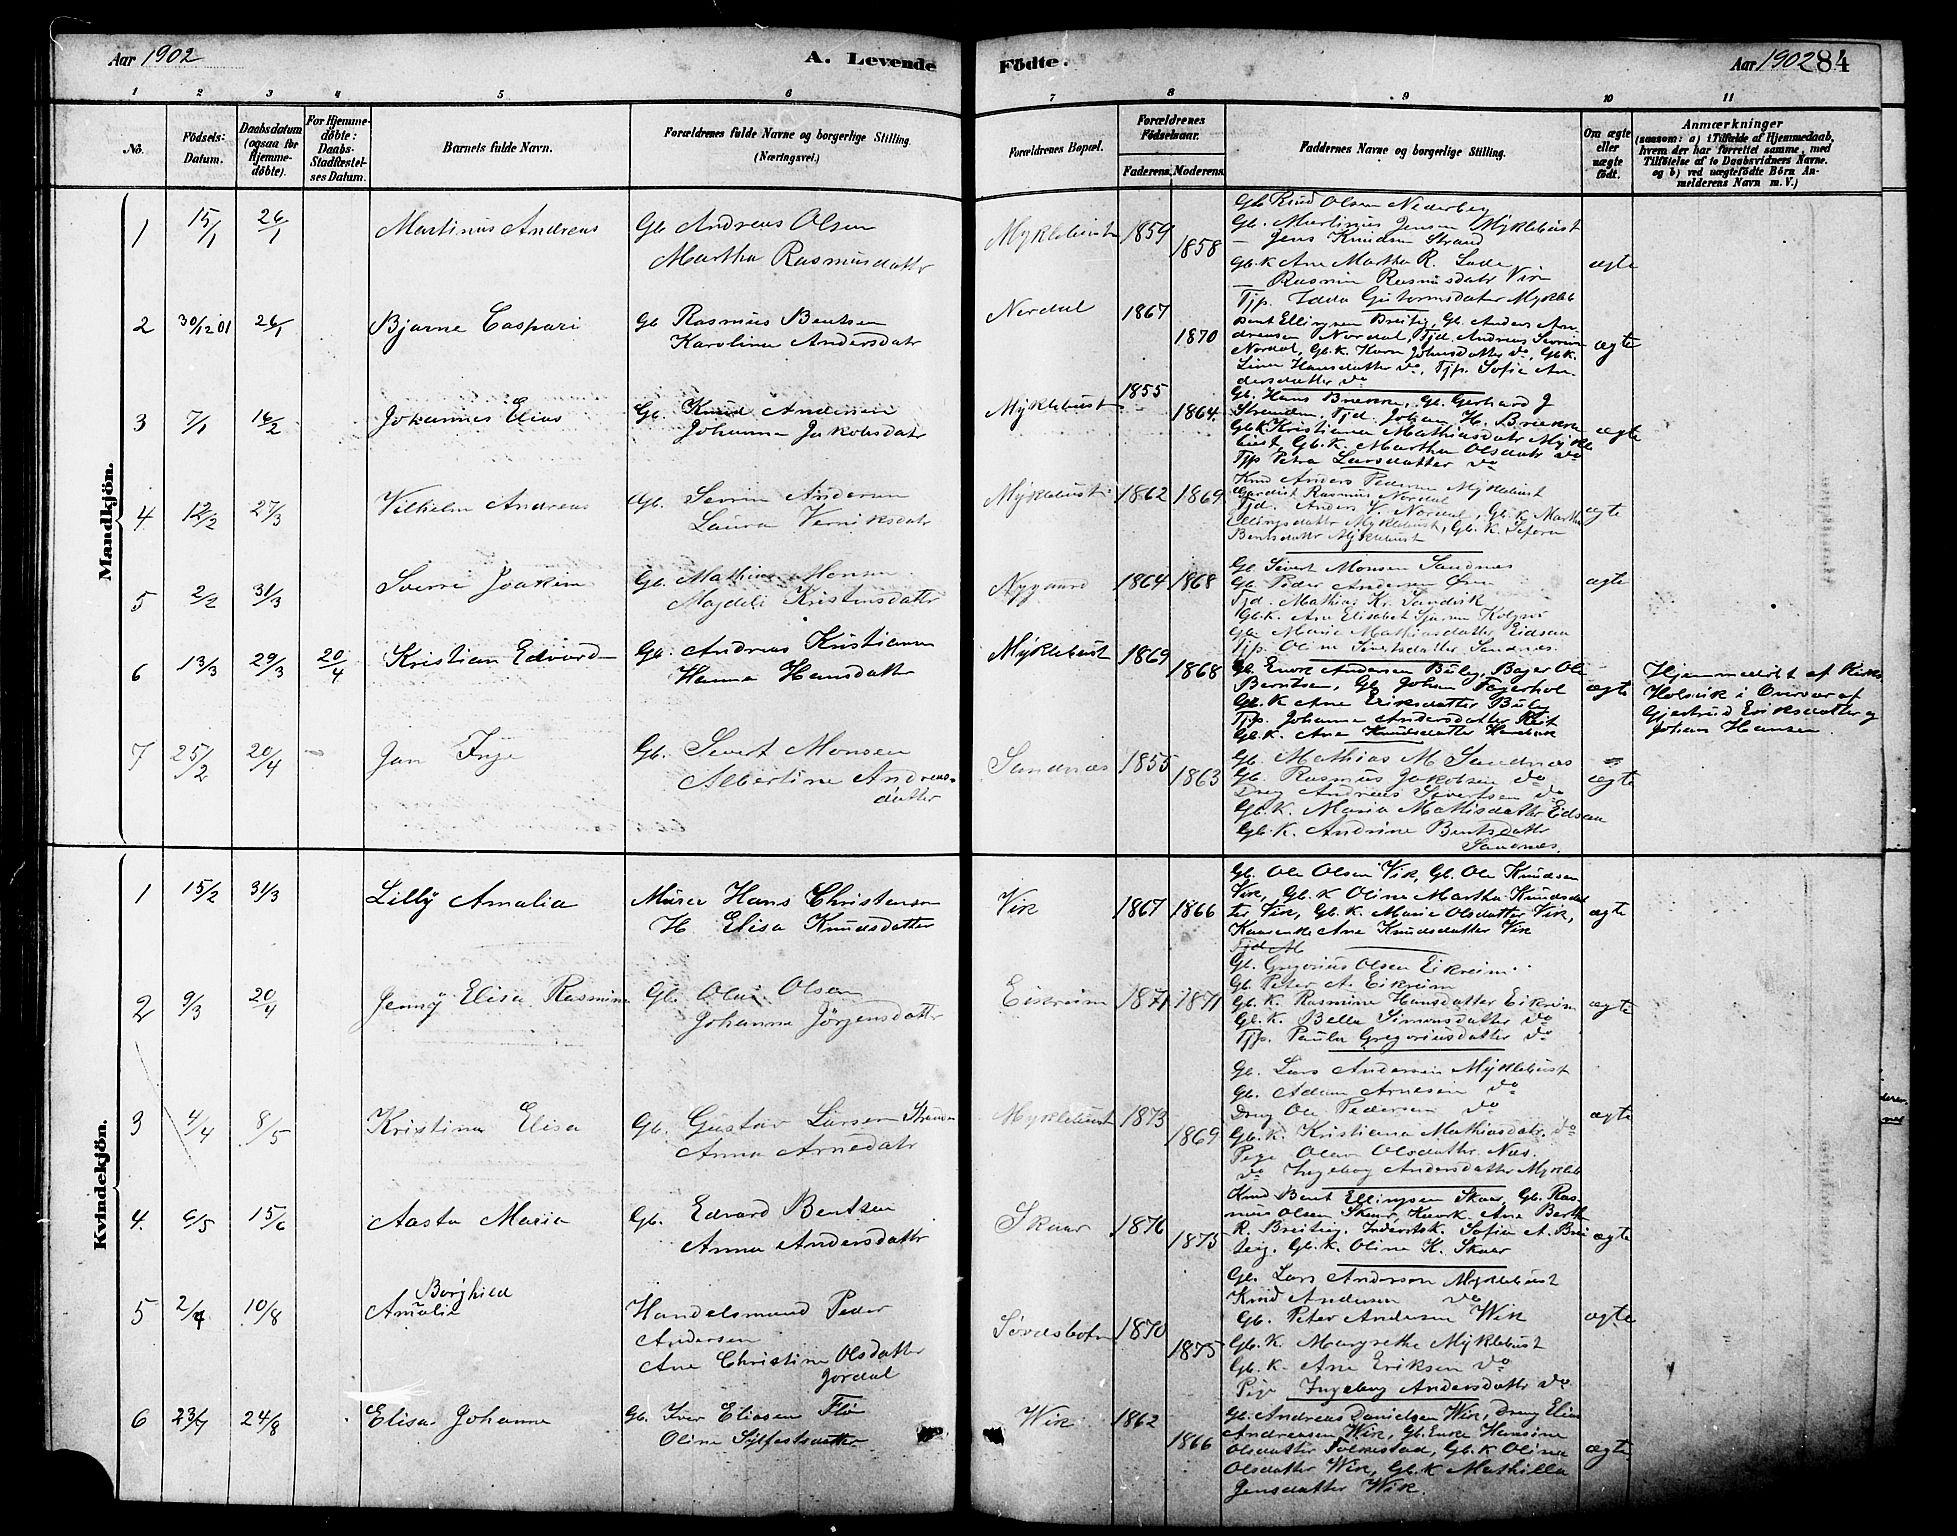 Aar 1902
A. Levende
Födte.
Aar 1902
84
1 2 3 4 5 6 7 8 9 10 11
No.
Födsels-Datum.
Daabsdatum (ogsaa for Hjemmedöbte).
For Hjemmedöbte: Daabs-Stadfæstelses Datum.
Barnets fulde Navn.
Forældrenes fulde Navne og borgerlige Stilling. (Næringsvei.)
Forældrenes Bopæl.
Forældrenes Födselsaar.
Faderens. Moderens.
Faddernes Navne og borgerlige Stilling.
Om ægte eller uægte födt.
Anmærkninger
(saasom: a) i Tilfælde af Hjemmedaab,
hvem der har forrettet samme, med
Tilföielse af to Daabsvidners Navne.
og b) ved uægtefödte Börn An-
melderens Navn m. V.)
Mandkjön.
1 15/1 26/1 Martinus Andreas
Gb. Andreas Olsen
Martha Rasmusdatr
Myklebust 1859 1858
Gb Knud Olsen Nederberg
Gb. Martinus Jensen Myklebust
— Jens Knudsen Strand
Gb.K Ane Martha R. Lade
— Rasmine Rasmusdatr Vik
Tjp. Idda Gutormsdater Mykleb
ægte
2 30/12 01 26/1 Bjarne Caspari
Gb Rasmus Bentsen
Karolina Andersdatr
Nordal 1867 1870
Bent Ellingsen Breiteig, Gb. Anders An-
dreasen Nordal, Tjd. Andreas
Nordal, Gb.K. Karn Johnsdatter do, Gb.K.
Lina Hansdatter do, Tjp. Sofie An-
dersdatter do
ægte
3 7/1 16/2 Johannes Elias
Gb. Knud Andersen
Johanna Jakobsdatr
Myklebust 1855 1864.
Gb. Hans Brekke, Gb. Gerhard J
Stranden, Tjd. Johan H. Brekke
Gb.K Kristiana Mathiasdatr Mykle
bust, Gb.K. Martha Olsdatr do
Tjp Petra Larsdatter do
ægte
4 12/2 27/3 Vilhelm Andreas
Gb. Severin Andersen
Laura Verniksdatr
Myklebust 1862 1869
Knud Anders Pedersen Myklebust
Gardist Rasmus Nordal
Tjd. Anders V. Nordal, Gb.K Martha
Ellingsdatter Myklebust, Gb.K.
Bentsdatter Myklebust
ægte
5 2/2 31/3 Sverre Joakim
Gb. Mathias Monsen
Magdeli Kristensdattr
Nygaard 1864 1868
Gb Sivert Monsen Sandnes
Gb Peder Andersen
Tjd. Mathias Kr. Sandvik
Gb.K. Ane Elisabet
Gb. Marie Mathiasdatter Eidsaa
Tjp. Oline Sivertsdatter Sandnes.
ægte
6 13/3 29/3 20/4 Kristian Edvard
Gb. Andreas Kristiansen
Hanna Hansdatter
Myklebust 1869 1868
Gb. Enok Andersen Buley, Bager Ole
Berntsen, Gb. Johan Fagerhol
Gb.K Ane Eriksdatter Buley
Tjp. Johanna Andersdatter Reit
Gb.K. Ane Knudsdatter
ægte
Hjemmedöbt af Kirks.
Holsvik i Overvær af
Gjertrud Eriksdatter og
Johan Hansen.
7 25/2 20/4 — Jan Inge
Gb. Sivert Monsen
Albertine Andreas-
datter
Sandnæs 1855 1863
Gb. Mathias M Sandnæs
Gb. Rasmus Jakobsen do
Dreng Andreas Sivertsen do
Gb.K. Maria M Mtisdatter Eidsaa
Gb.K. Andrine Bentsdatter
Sandnes.
ægte
Kvindekjön.
1 15/2 31/3 Lilly Amalia
Murer Hans Christensen
H Elisa Knudsdatter
Vik 1867 1866
Gb. Ole Olsen Vik, Gb. Ole Knudsen
Vik, Gb.K Oline Martha Knudsdat
ter Vik, Gb.K. Marie Olsdatter Vik,
Kaarenke Ane Knudsdatter Vik
ægte
2 9/3 20/4 Jenny Elisa Rasmine
Gb. Olai Olsen
Johanna Jörgensdattr
Eikreim 1871 1871
Gb. Gregorius Olsen Eikreim
Gb. Peter A. Eikreim
Gb.K. Rasmine Hansdatter Eikreim
Gb.K. Bella Simonsdatter do
Tjp. Paula Gregoriusdatter do
ægte
3 4/4 8/5 Kristina Elisa
Gb. Gustav Larsen
Anna Arnedatr
Myklebust 1873 1869
Gb. Lars Andersen Myklebust
Gb. Adam Arnesen do
Dreng Ole Pedersen do
Gb.K. Kristiana Mathiasdatr. do
Pige Olava Olsdattr. Næs.
do Ingeborg Andersdatter Mykleb
ægte
4. 6/5 15/6 Aasta Maria
Gb. Edvard Bentsen
Anna Andersdattr
Skaar 1876 1875
Knud Bent Ellingsen Skaar, Gb. Ras-
mus Olsen Skaar, Kaark. Ane Berthe
R. Breiteig. Inderstk. Sofie A. Brei
teig. Gb.K. Oline K. Skaar
ægte
5 2/7 10/8 Borghild
Amalie
Handelsmand Peder
Andersen
Ane Christine Olsdatter
Jordal
1870 1875
Gb. Lars Anderson Myklebust
Knud Andersen do
Gb. Peter Andersen Wik
Gb.K. Margrethe Myklebust
Gb.K. Ane Eriksen do
Pige Ingeborg Andersdatter do
ægte
6 23/7 24/8 Elisa Johanne
Gb. Iver Eliasen Flö
Oline Sylfestsdatter
Wik 1862 1866
Gb. Andreas Danielsen Wik, Dreng Elias
Andreasen Wik, Gb.Enke Hansine
Olsdatter Folkestad, Gb.K Oline
Olsdatter Wik, Gb.K Mathilla
Jensdatter Wik.
ægte